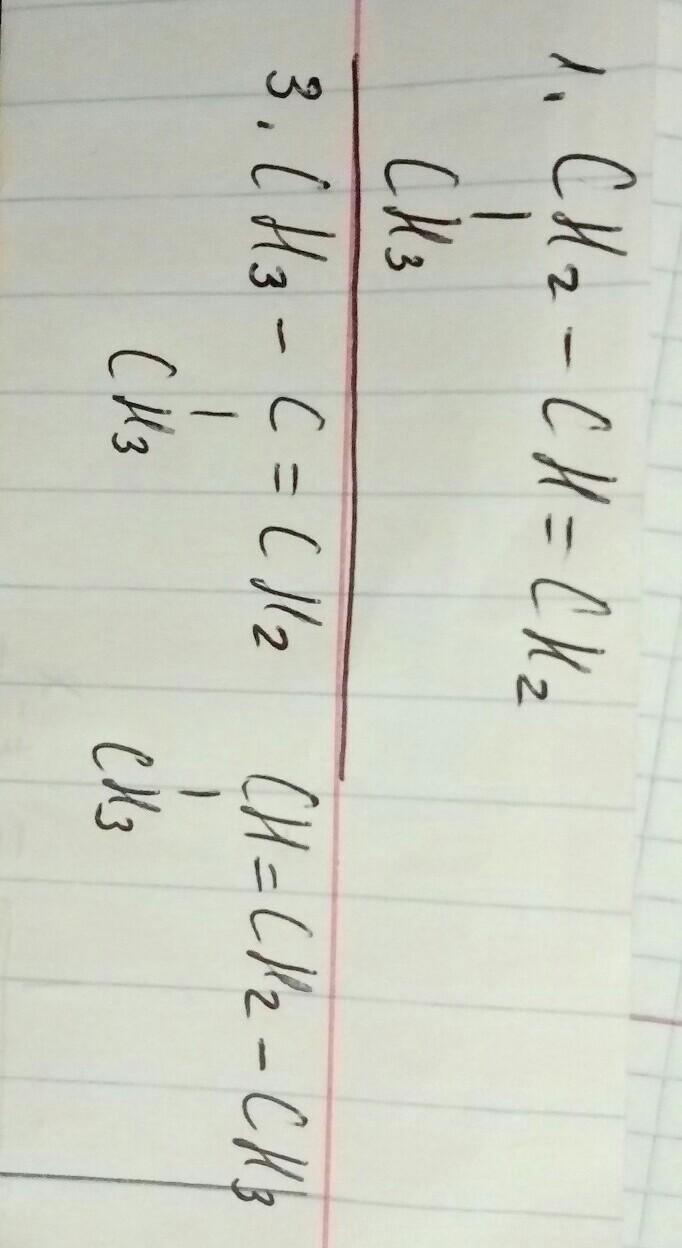 1. CH2 - CH = CH2
|
CH3
3. CH3 - C = CH2 CH = CH2 - CH3
| |
CH3 CH3